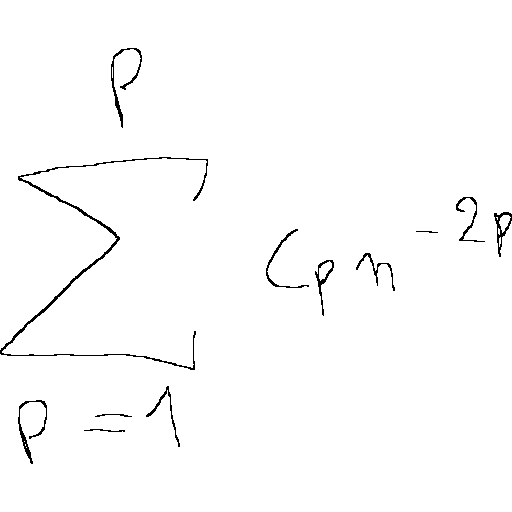 \sum_{p=1}^{P} c_p n^{-2p}